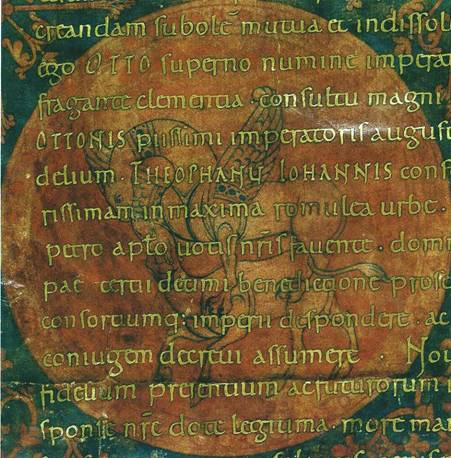 creandam subolē mutua et indissol
ego OTTO superno numine imperat
fragante clementia consultu magni
OTTONIS piissimi imperatoris august
delium. THEOPHANU IOHANNIS con
rissimam in maxima romulea urbe.
petro aptō uotis nr̄is fauente. dom
pae tertii decimi benedictione pros
consortiumq; imperii despondere. ac
coniugem decreui assumere. No
fidelium presentium ac futurorum
sponse nr̄e dote legtiuma. more ma